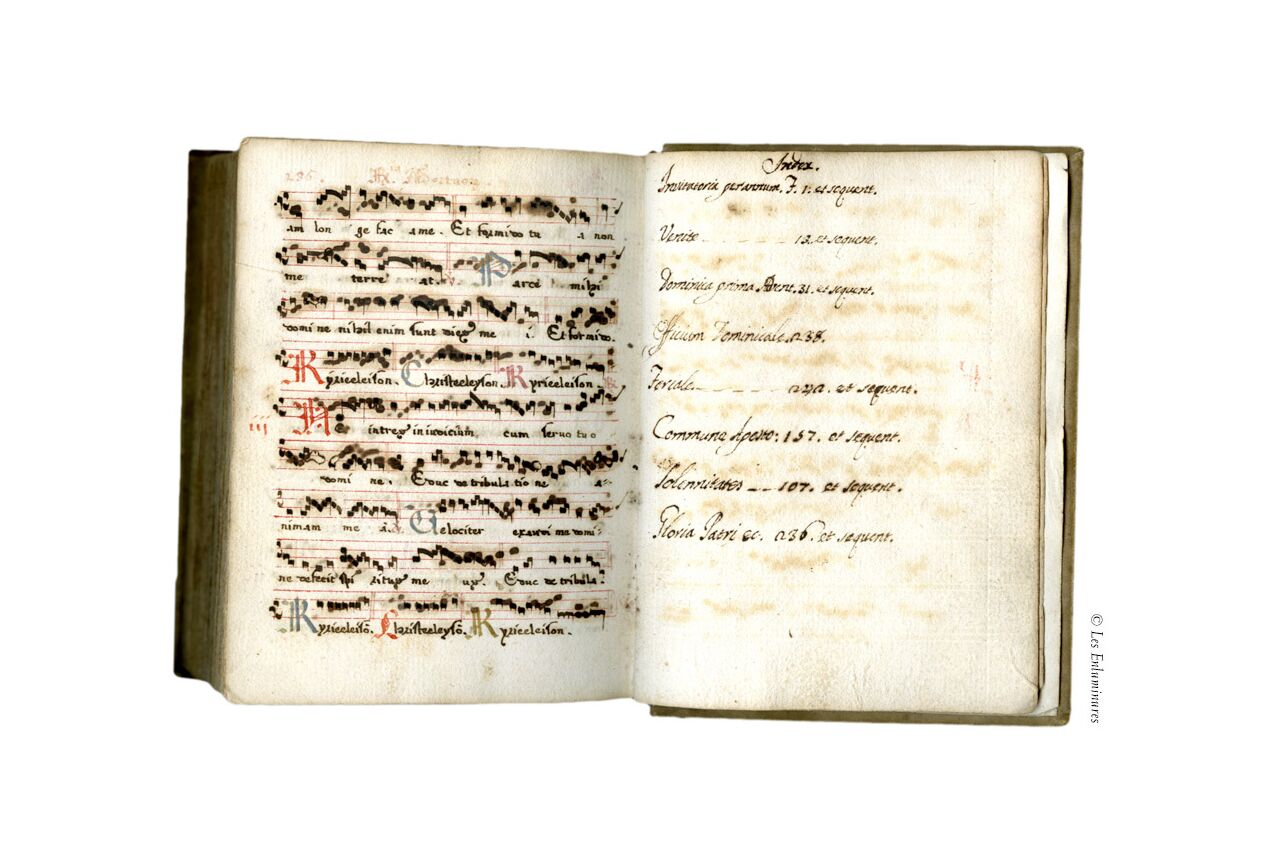 236.
am lon ge fac a me. Et formido tu a non
me terre at. V. Parce mihi
domine nihil enim sunt dies me i. Et formido.
Kyrieeleison. Christeeleyson. Kyrieeleison.
iij Ne intres in iudicium cum servo tuo
domi ne. Educ de tribula tio ne a-
nimam me a. Velociter exaudi me domi-
ne defecit spi ritus me us. Educ de tribula.
Kyrieeleisō. Christeeleysō. Kyrieeleison.
Index.
Invitatoria per annum. F. 1. et sequent.
Venite 13. et sequent.
Dominica prima Advent. 31. et sequent.
Officium Dominicale 238.
Feriale 242. et sequent.
Commune Aposto: 157. et sequent.
Solennitates 107. et sequent.
Gloria Patri &c. 236. et sequent.
© Les Enluminures